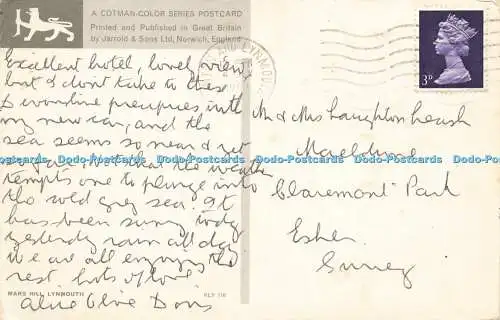 A COTMAN-COLOR SERIES POSTCARD
Printed and Published in Great Britain
by Jarrold & Sons Ltd, Norwich, England
AND LYNMOU
3D
Excellent hotel, lovely views
but I don't take to these
my new car, and the
sea seems so near & yet
so far. Not that the weather
tempts one to plunge into
the cold grey sea. It
has been sunny today
yesterday rain all day
We are all enjoying the
rest. Lots of love
Alice Olive Doris
Mr & Mrs Laughton Leash
Claremont Park
Esher
Surrey
Dodo-Postcards Dodo-Postcards Dodo-Postcards Dodo-Postcards Dodo-Postcards
MARS HILL, LYNMOUTH